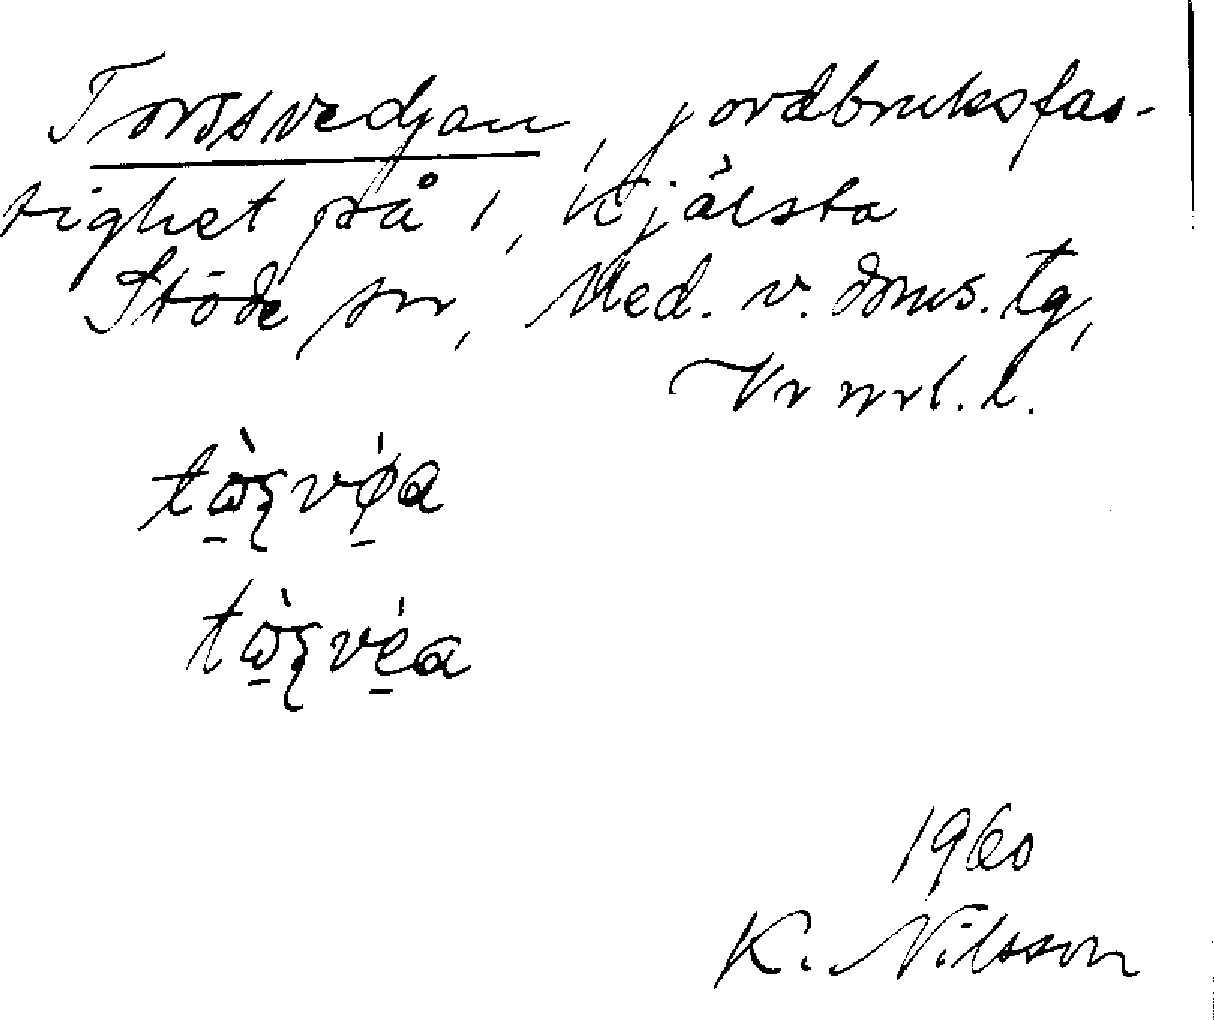 Torssvedjan, jordbruksfas-
tighet på 1, Kjälsta
Stöde sn, Med. v. doms. tg,
Vr nrl. l.
1960
K. Nilsson